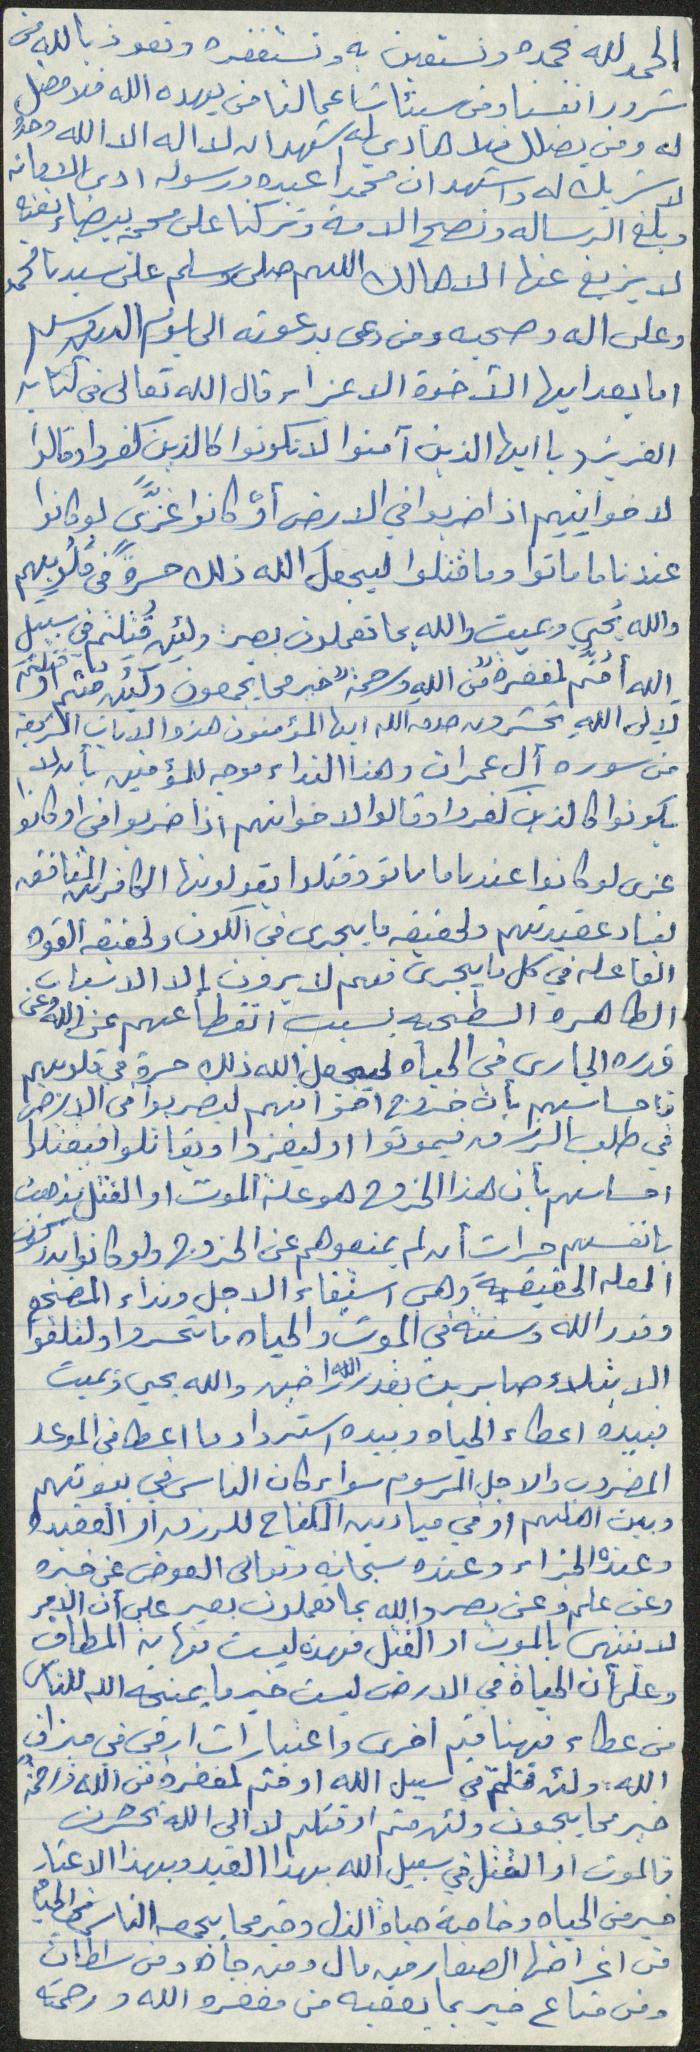 الحمد لله نحمده ونستعين به ونستغفره ونعوذ بالله من
شرور انفسنا ومن سيئات اعمالنا من يهده الله فلا مضل
له ومن يضلل فلا هادي له اشهد ان لا اله الا الله وحده
لا شريك له واشهد ان محمدا عبده ورسوله ادى الامانه
وبلغ الرساله ونصح الامة وتركنا على محجة بيضاء نقية
لا يزيغ عنها الا هالك اللهم صلي وسلم على سيدنا محمد
وعلى اله وصحبه ومن دعى بدعوته الى يوم الدين وسلم
اما بعد ايها الأخوة الاعزاء قال الله تعالى في كتابه
العزيز يا ايها الذين آمنوا لا تكونوا كالذين كفروا وقالوا
لاخوانهم اذا ضربوا في الارض أوْ كانوا غزىً لو كانوا
عندنا ما ماتوا وما قتلوا ليجعل الله ذلك حسرةً في قُلُوبهم
والله يُحيي ويميت والله بما تعملون بصير ولئِن قُتِلتم في سبيل
الله أو مُتُّم لمغفرةٌ مِّن اللهِ ورحمةٌ خير مما يجمعون ولئن متم أو قتلتم
لإلى اللهِ تحشرون صدق الله ايها المؤمنون هذه الايات الشريفه
من سوره أل عمران وهذا النداء موجه للمؤمنين بأن لا
يكونوا كالذين كفروا وقالوا لاخوانهم اذا ضربوا في او كانوا
غزى لو كانوا عندنا ما ماتو وقتلوا يقولونها الكافرين المنافقه
لفساد عقيدتهم ولحقيقه ما يجرى في الكون ولحقيقه القوه
الفاعله في كل ما يجرى فهم لا يرون إلا الاسباب
الظاهره السطحيه بسبب انقطاعهم عن الله وعن
قدره الجارى في الحياه ليجعل الله ذلك حسرة في قلوبهم
فاحساسهم بأن خروج اخوانهم ليضربوا في الارض
في طلب الرزق فيموتوا او ليغزوا ويقاتلوا فيقتلوا
احساسهم بأن هذا الخروج هو علة الموت او القتل يذهب
بانفسهم حسرات أن لم يمنعوهم عن الخروج ولو كانوا يدركون
العله الحقيقيةَ وهي استيفاء الاجل ونداء المضجع
وقدر الله وسنته في الموت والحياه ما تحسروا ولتلقوا
الابتلاء صابرين بقدر الله راضين والله يحيي ويميت
فبيده اعطاء الحياه وبيده استرداد ما اعطا في الموعد
المضروب والاجل المرسوم سواء كان الناس في بيوتهم
وبين اهلهم او في ميادين الكفاح للرزق او العقيده
وعنده الجزاء وعنده سبحانه وتعالى العوض عن خبره
وعن علم وعن بصر والله بما تعملون بصير على أن الامر
لا ينتهي بالموت او القتل فهذه ليست نهاية المطاف
وعلى أن الحياة في الارض ليست خير ما يمنحه الله للناس
من عطاء فهنا قيم أخرى واعتبارات ارقى في ميزان
الله ولئن قتلتم في سبيل الله او متم لمغفرة من الله ورحمة
خير مما يجمعون ولئن متم او قتلتم لا الى الله تحشرون
فالموت او القتل في سبيل الله بهذا القيد وبهذا الاعتبار
خير من الحياه وخاصة حياة الذل وخير مما يجمعه الناس في الحياه
من اغراضها الصغار من مال ومن جاه ومن سلطان
ومن متاع خير بما يعقبه من مغفره الله ورحمته